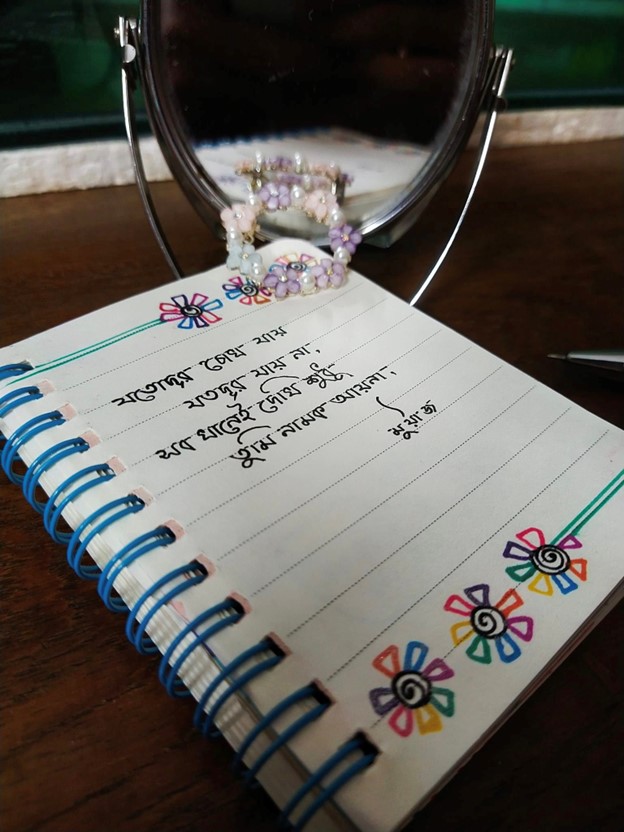 যতোদূর চোখ যায়
যতদূর যায় না,
সব খানেই দেখি শুধু
তুমি নামক আয়না,
মুয়াজ